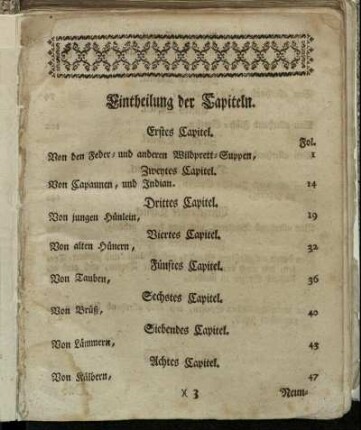 Eintheilung der Capiteln.
Erstes Capitel.
Fol.
Von den Feder- und anderen Wildprett-Suppen, 1
Zweytes Capitel.
Von Capaunen, und Indian. 14
Drittes Capitel.
Von jungen Hünlein, 19
Viertes Capitel.
Von alten Hünern, 32
Fünftes Capitel.
Von Tauben, 36
Sechstes Capitel.
Von Brüß, 40
Siebendes Capitel.
Von Lämmern, 43
Achtes Capitel.
Von Kälbern, 47
X 3 Neun-